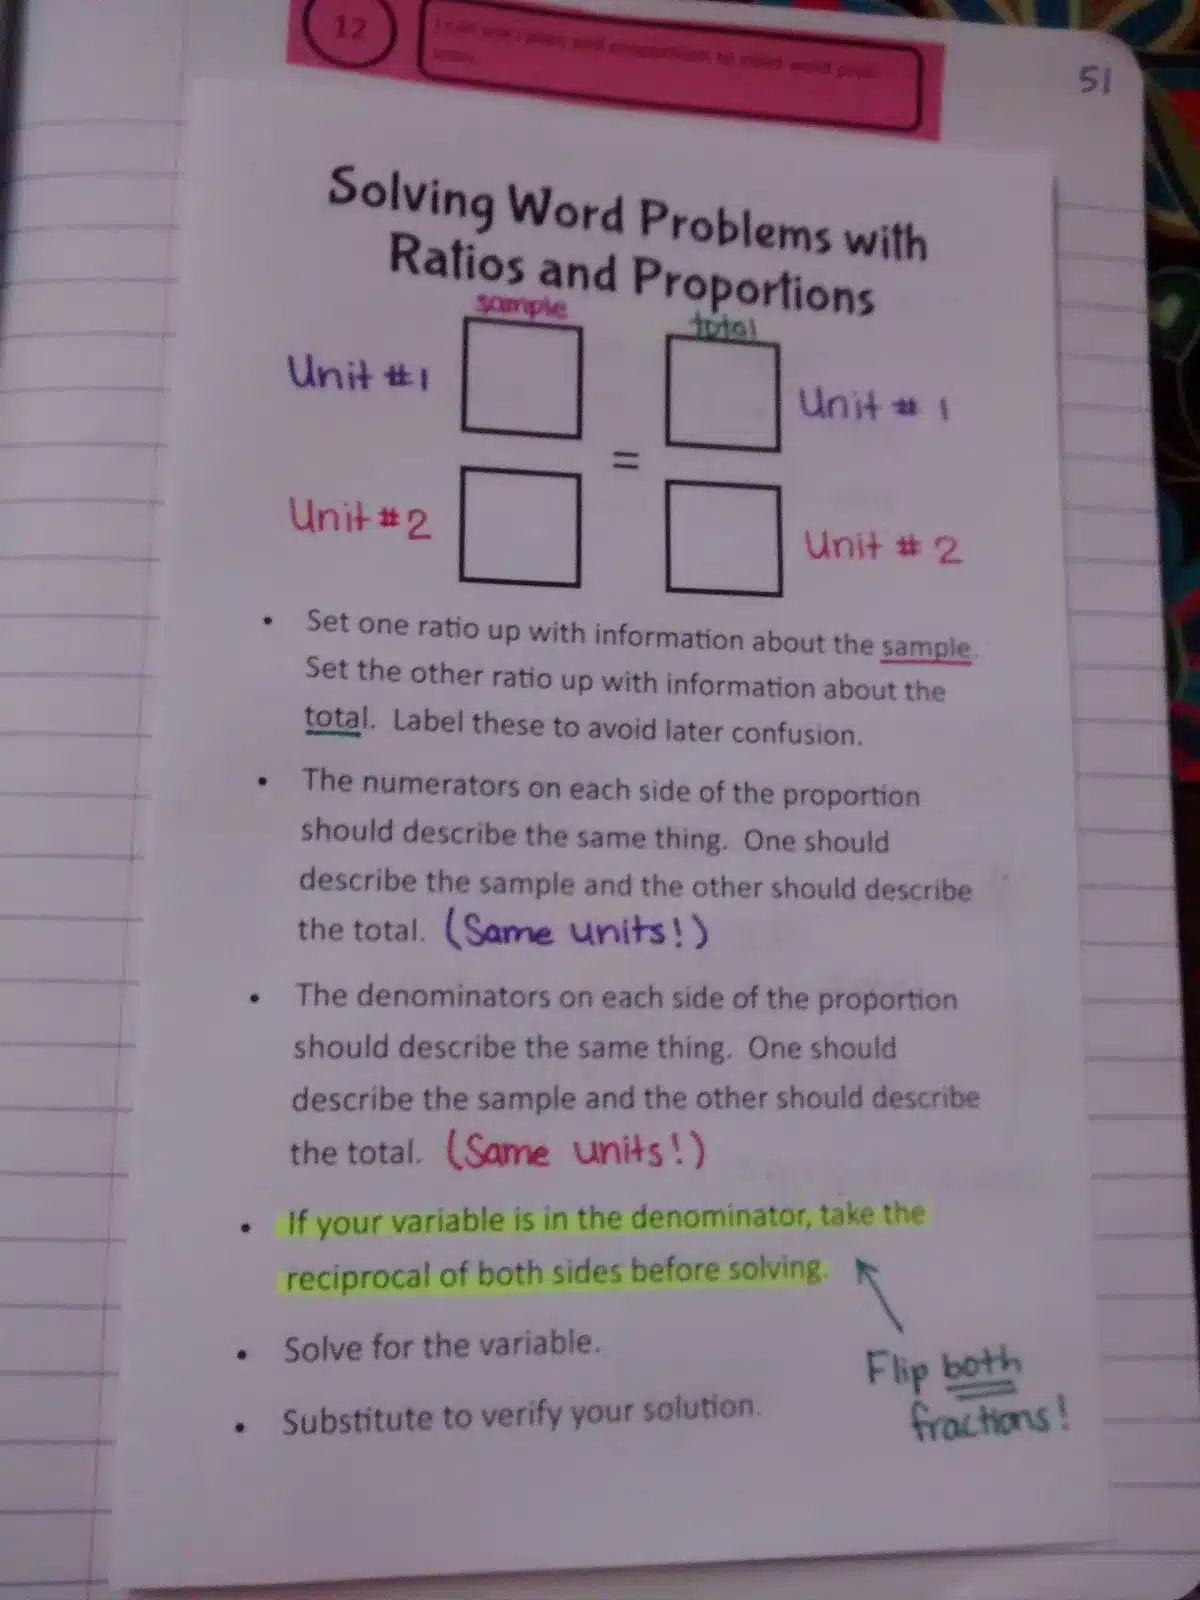 12
I can use ratios and proportions to solve word prob-
lems.
51
Solving Word Problems with
Ratios and Proportions
sample
total
Unit #1
Unit # 1
=
Unit #2
Unit # 2
• Set one ratio up with information about the sample.
Set the other ratio up with information about the
total. Label these to avoid later confusion.
• The numerators on each side of the proportion
should describe the same thing. One should
describe the sample and the other should describe
the total. (Same units!)
• The denominators on each side of the proportion
should describe the same thing. One should
describe the sample and the other should describe
the total. (Same units!)
• If your variable is in the denominator, take the
reciprocal of both sides before solving.
• Solve for the variable.
Flip both
fractions!
• Substitute to verify your solution.